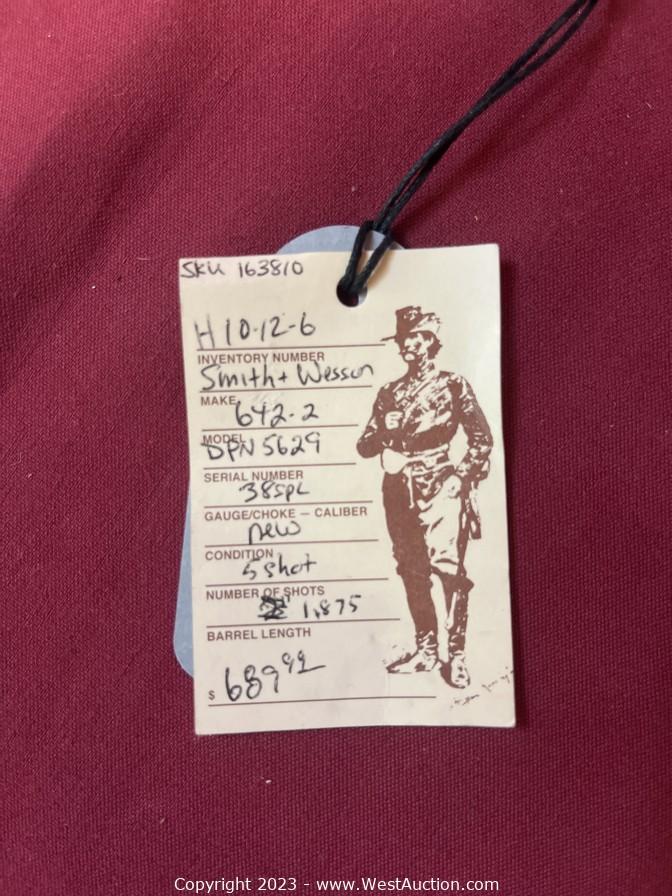 SKU 163810
H10-12-6
INVENTORY NUMBER
Smith + Wesson
MAKE
642-2
MODEL
DPN5629
SERIAL NUMBER
38SPL
GAUGE/CHOKE — CALIBER
new
CONDITION
5 shot
NUMBER OF SHOTS
1.875
BARREL LENGTH
$ 689.99
Copyright 2023 - www.WestAuction.com